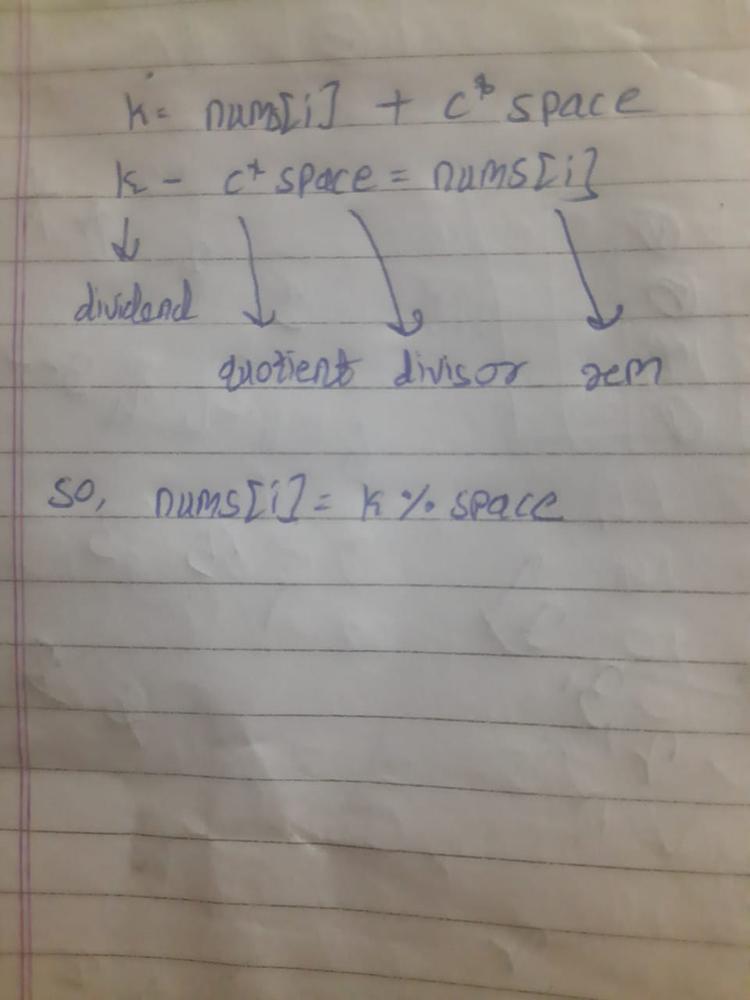 k = nums[i] + c* space
k - c* space = nums[i]
dividend
quotient divisor rem
so, nums[i] = k % space